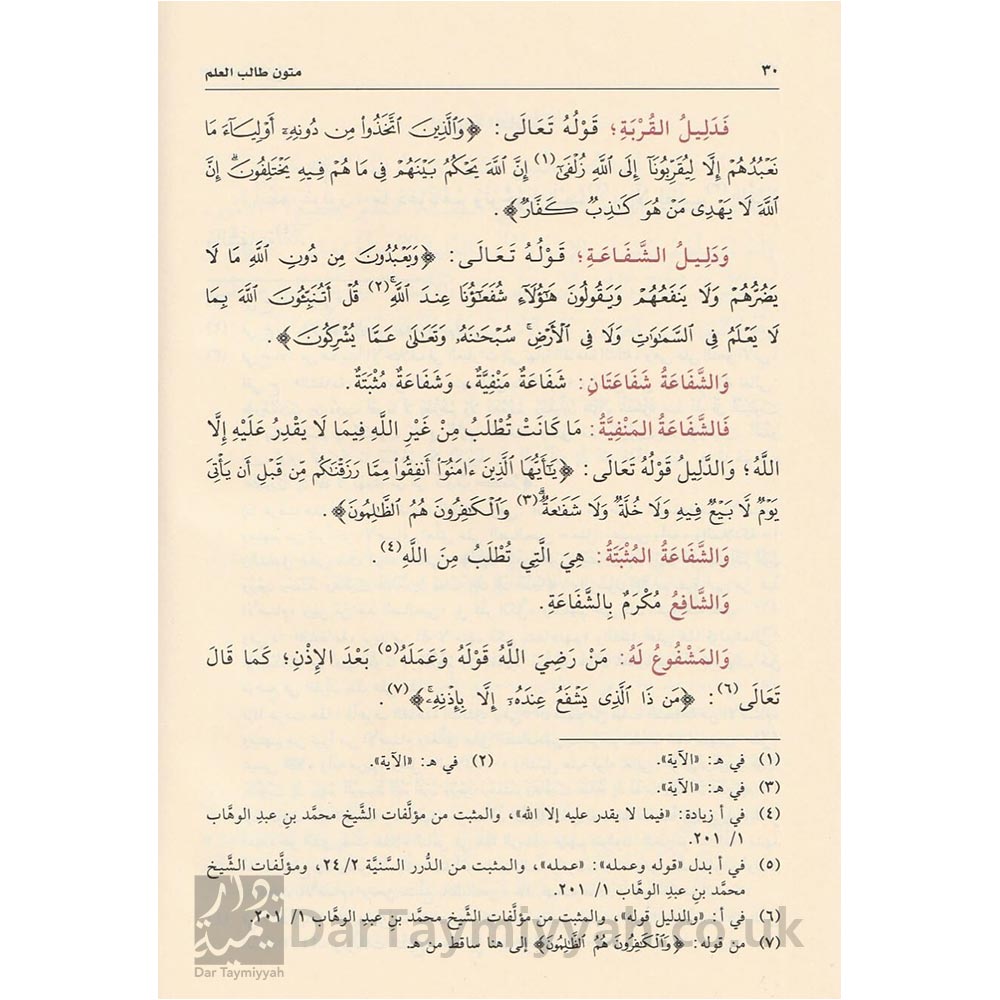 ٣٠ متون طالب العلم
فَدَلِيلُ القُرْبَةِ؛ قَوْلُهُ تَعَالَى: ﴿وَٱلَّذِينَ ٱتَّخَذُوا۟ مِن دُونِهِۦٓ أَوْلِيَآءَ مَا
نَعْبُدُهُمْ إِلَّا لِيُقَرِّبُونَآ إِلَى ٱللَّهِ زُلْفَىٰٓ(١) إِنَّ ٱللَّهَ يَحْكُمُ بَيْنَهُمْ فِى مَا هُمْ فِيهِ يَخْتَلِفُونَ ۗ إِنَّ
ٱللَّهَ لَا يَهْدِى مَنْ هُوَ كَٰذِبٌ كَفَّارٌ﴾.
وَدَلِيلُ الشَّفَاعَةِ؛ قَوْلُهُ تَعَالَى: ﴿وَيَعْبُدُونَ مِن دُونِ ٱللَّهِ مَا لَا
يَضُرُّهُمْ وَلَا يَنفَعُهُمْ وَيَقُولُونَ هَٰٓؤُلَآءِ شُفَعَٰٓؤُنَا عِندَ ٱللَّهِ ۚ(٢) قُلْ أَتُنَبِّـُٔونَ ٱللَّهَ بِمَا
لَا يَعْلَمُ فِى ٱلسَّمَٰوَٰتِ وَلَا فِى ٱلْأَرْضِ ۚ سُبْحَٰنَهُۥ وَتَعَٰلَىٰ عَمَّا يُشْرِكُونَ﴾.
وَالشَّفَاعَةُ شَفَاعَتَانِ: شَفَاعَةٌ مَنْفِيَّةٌ، وَشَفَاعَةٌ مُثْبَتَةٌ.
فَالشَّفَاعَةُ المَنْفِيَّةُ: مَا كَانَتْ تُطْلَبُ مِنْ غَيْرِ اللَّهِ فِيمَا لَا يَقْدِرُ عَلَيْهِ إِلَّا
اللَّهُ؛ وَالدَّلِيلُ قَوْلُهُ تَعَالَى: ﴿يَٰٓأَيُّهَا ٱلَّذِينَ ءَامَنُوٓا۟ أَنفِقُوا۟ مِمَّا رَزَقْنَٰكُم مِّن قَبْلِ أَن يَأْتِىَ
يَوْمٌ لَّا بَيْعٌ فِيهِ وَلَا خُلَّةٌ وَلَا شَفَٰعَةٌ ۗ(٣) وَٱلْكَٰفِرُونَ هُمُ ٱلظَّٰلِمُونَ﴾.
وَالشَّفَاعَةُ المُثْبَتَةُ: هِيَ الَّتِي تُطْلَبُ مِنَ اللَّهِ(٤).
وَالشَّافِعُ مُكْرَمٌ بِالشَّفَاعَةِ.
وَالمَشْفُوعُ لَهُ: مَنْ رَضِيَ اللَّهُ قَوْلَهُ وَعَمَلَهُ(٥) بَعْدَ الإِذْنِ؛ كَمَا قَالَ
تَعَالَى(٦): ﴿مَن ذَا ٱلَّذِى يَشْفَعُ عِندَهُۥٓ إِلَّا بِإِذْنِهِۦ ۚ﴾(٧).
(١) في هـ: «الآية». (٢) في هـ: «الآية».
(٣) في هـ: «الآية».
(٤) في أ زيادة: «فيما لا يقدر عليه إلا الله»، والمثبت من مؤلَّفات الشَّيخ محمَّد بنِ عبدِ الوهَّاب
١/ ٢٠١.
(٥) في أ بدل «قوله وعمله»: «عمله»، والمثبت من الدُّرر السَّنيَّة ٢/ ٢٤، ومؤلَّفات الشَّيخ
محمَّد بن عبد الوهَّاب ١/ ٢٠١.
(٦) في أ: «والدليل قوله»، والمثبت من مؤلَّفات الشَّيخ محمَّد بنِ عبدِ الوهَّاب ١/ ٢٠١.
(٧) من قوله: ﴿وَٱلْكَٰفِرُونَ هُمُ ٱلظَّٰلِمُونَ﴾ إلى هنا ساقط من هـ.
دار تيمية
Dar Taymiyyah
DarTaymiyyah.co.uk